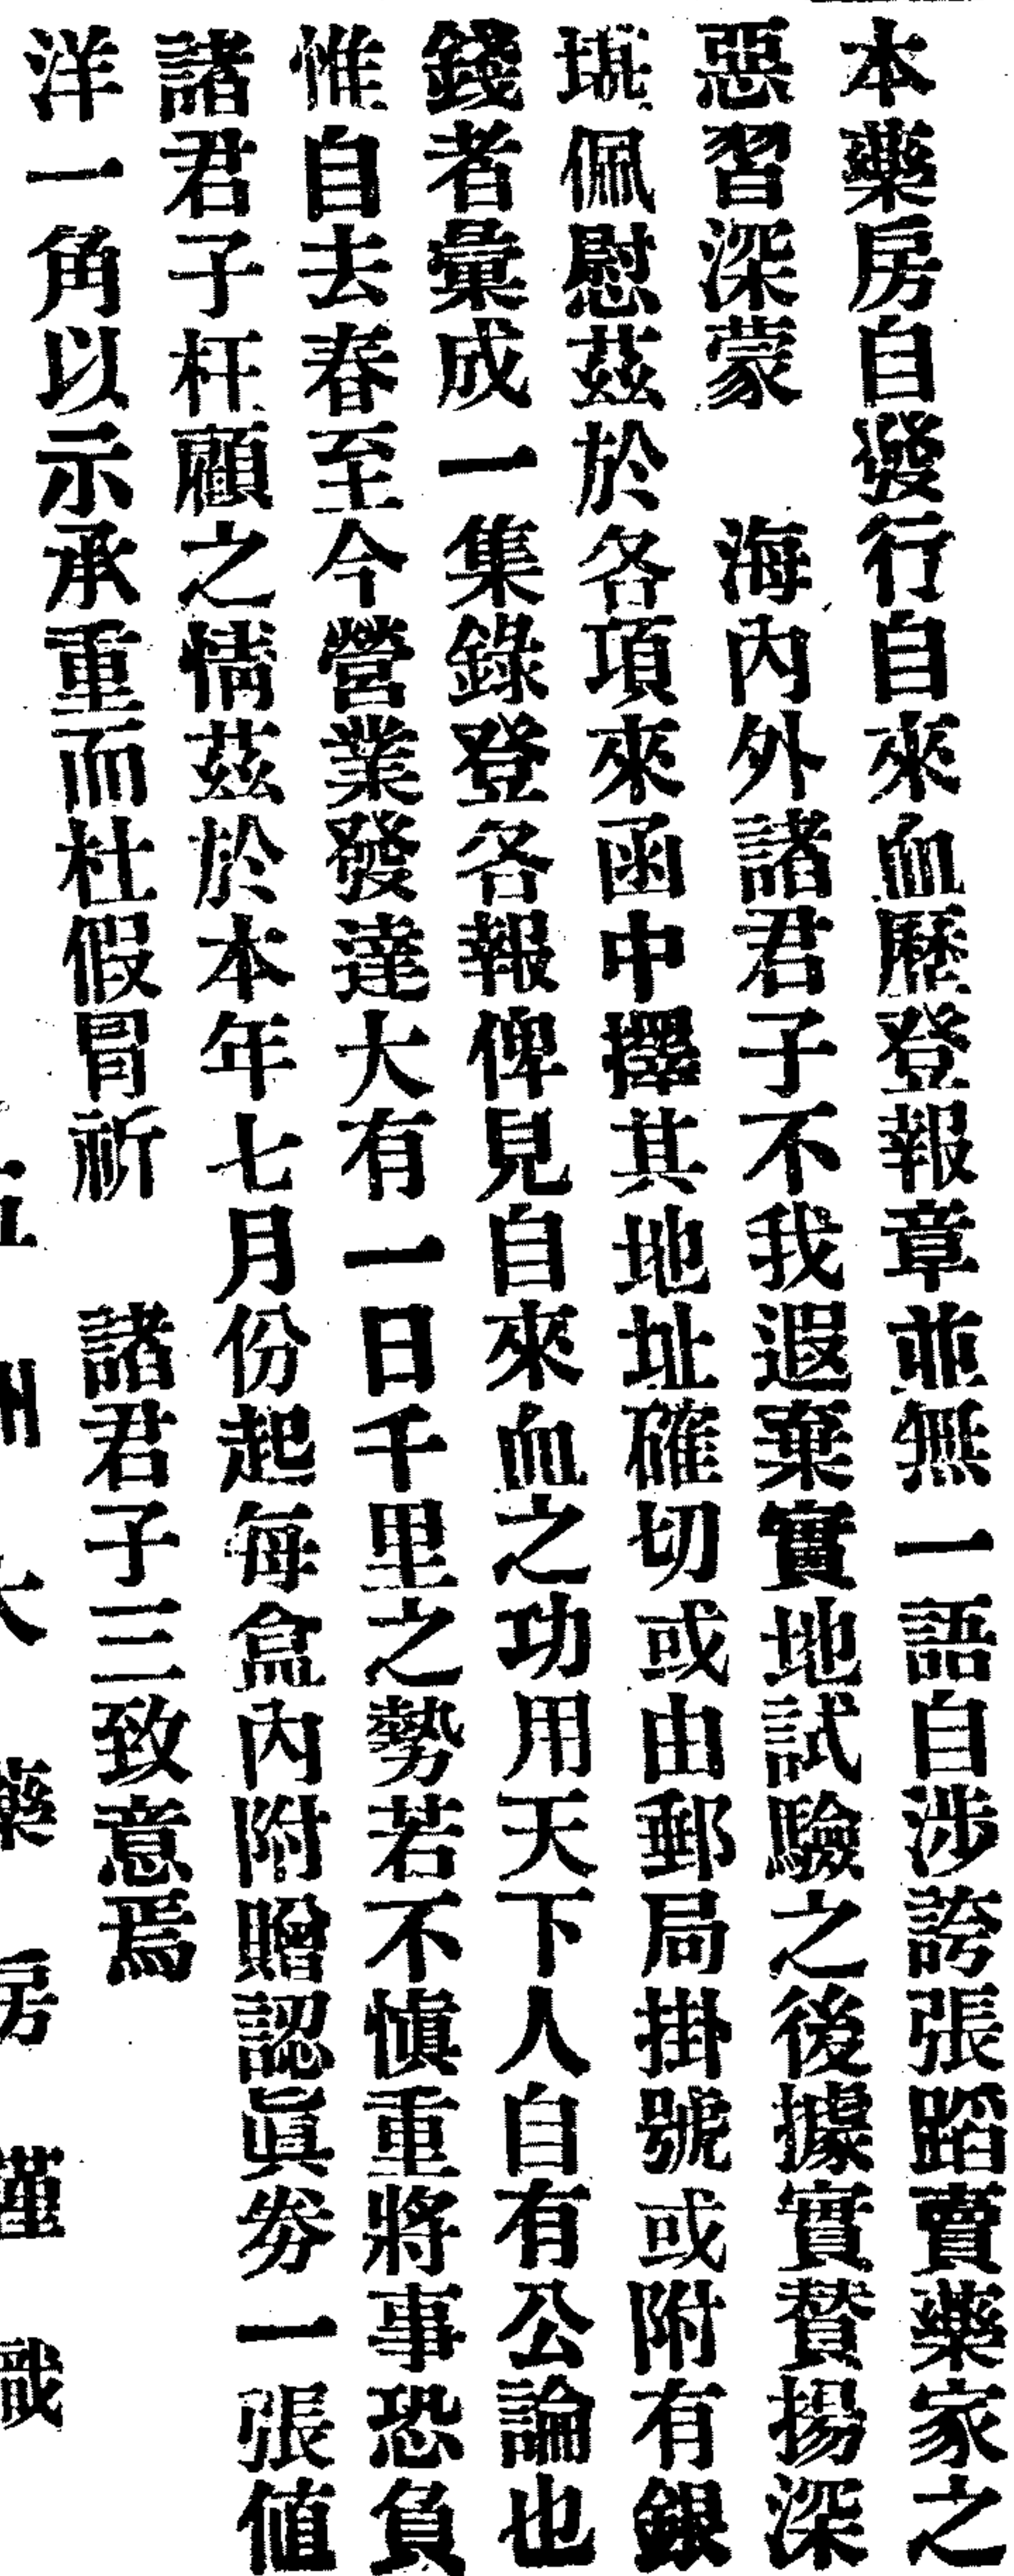 本藥房自發行自來血歷登報章並無一語自涉誇張蹈賣藥家之
惡習深蒙　海內外諸君子不我遐棄實地試驗之後據實贊揚深
堪佩慰茲於各項來函中擇其地址確切或由郵局掛號或附有銀
錢者彙成一集錄登各報俾見自來血之功用天下人自有公論也
惟自去春至今營業發達大有一日千里之勢若不慎重將事恐負
諸君子枉顧之情茲於本年七月份起每盒內附贈認眞券一張値
洋一角以示承重而杜假冒祈　諸君子三致意焉
五洲大藥房謹識